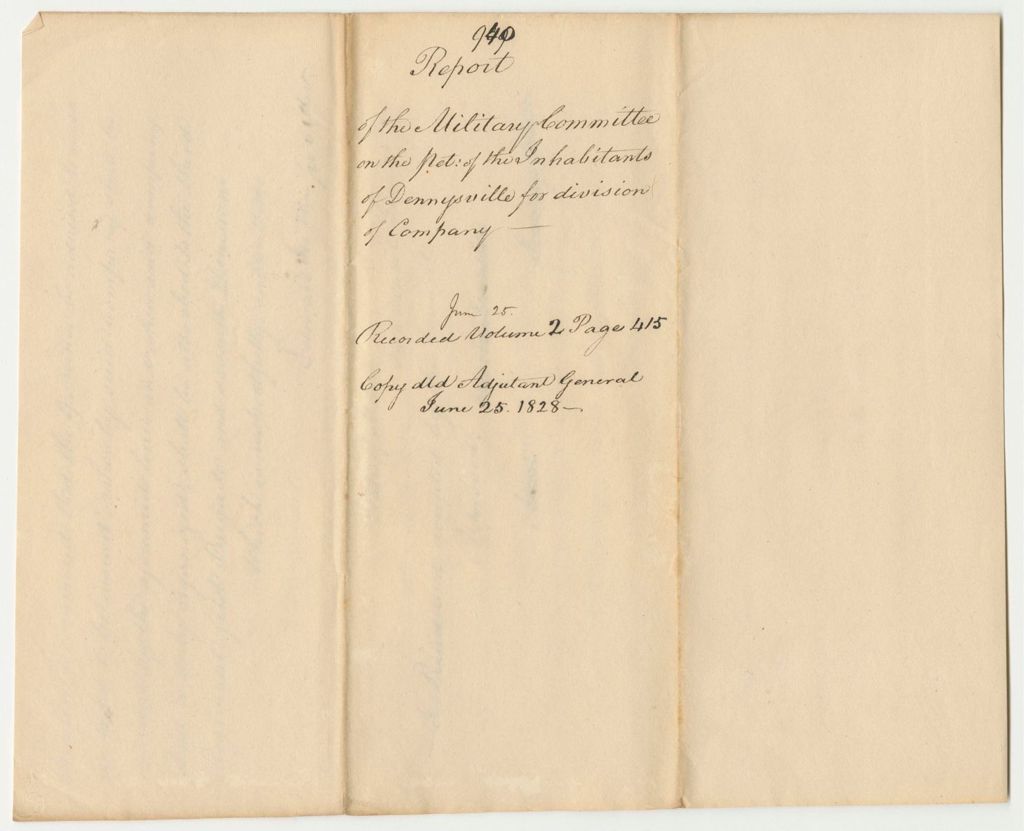 Report
of the Military Committee
on the Pet: of the Inhabitants
of Dennysville for division
of Company —
June 25.
Recorded Volume 2 Page 415
Copy dld Adjutant General
June 25. 1828 —